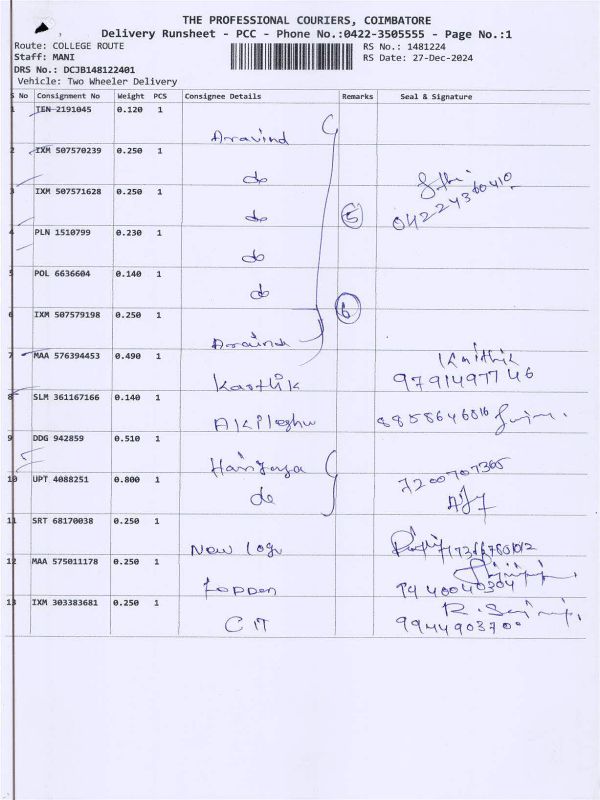 THE PROFESSIONAL COURIERS, COIMBATORE
Delivery Runsheet - PCC - Phone No.:0422-3505555 - Page No.:1
Route: COLLEGE ROUTE RS No.: 1481224
Staff: MANI RS Date: 27-Dec-2024
DRS No.: DCJB148122401
Vehicle: Two Wheeler Delivery
S No Consignment No Weight PCS Consignee Details Remarks Seal & Signature
1 TEN 2191045 0.120 1
Aravind
2 IXM 507570239 0.250 1
do
3 IXM 507571628 0.250 1
do 5
4 PLN 1510799 0.230 1
do
5 POL 6636604 0.140 1
do
6 IXM 507579198 0.250 1 6
Aravind
7 MAA 576394453 0.490 1
Karthik 9791497746
8 SLM 361167166 0.140 1
9 DDG 942859 0.510 1
7200707365
10 UPT 4088251 0.800 1
do
11 SRT 68170038 0.250 1
New
12 MAA 575011178 0.250 1
13 IXM 303383681 0.250 1
CIT